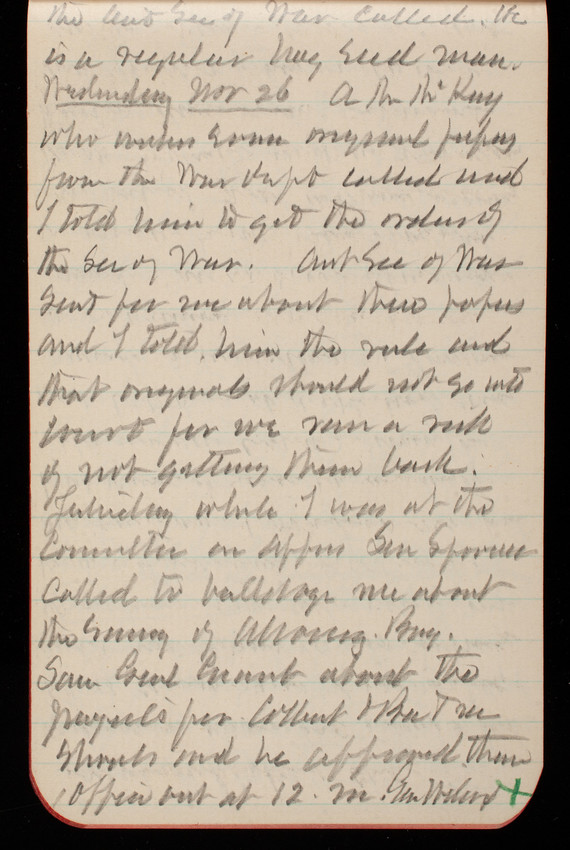 the Asst Sec of War called. He
is a regular hay seed man.
Wednesday Nov 26 A Mr McKay
who wants some original papers
from the War Dept called and
I told him to get the orders of
the Sec of War. Asst Sec of War
Sent for me about these papers
and I told him the rule and
that originals should not go into
court for we ran a risk
of not getting them back.
Tuesday while I was at the
Committee on Appns Gen
Called to me about
the Survey of Bay.
Saw Genl Grant about the
for Collect &
and he approved them
Office out at 12. m. Gen